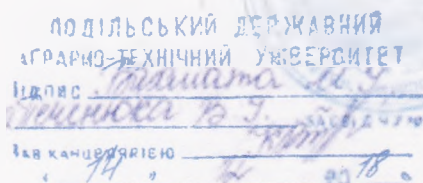 ПОДІЛЬСЬКИЙ ДЕРЖАВНИЙ
АГРАРНО-ТЕХНІЧНИЙ УНІВЕРСИТЕТ
Підпис Бахмата М.І.
Печенюка В.І. ЗАСВІДЧУЮ
Зав канцелярією
" 14 " 12 20 18